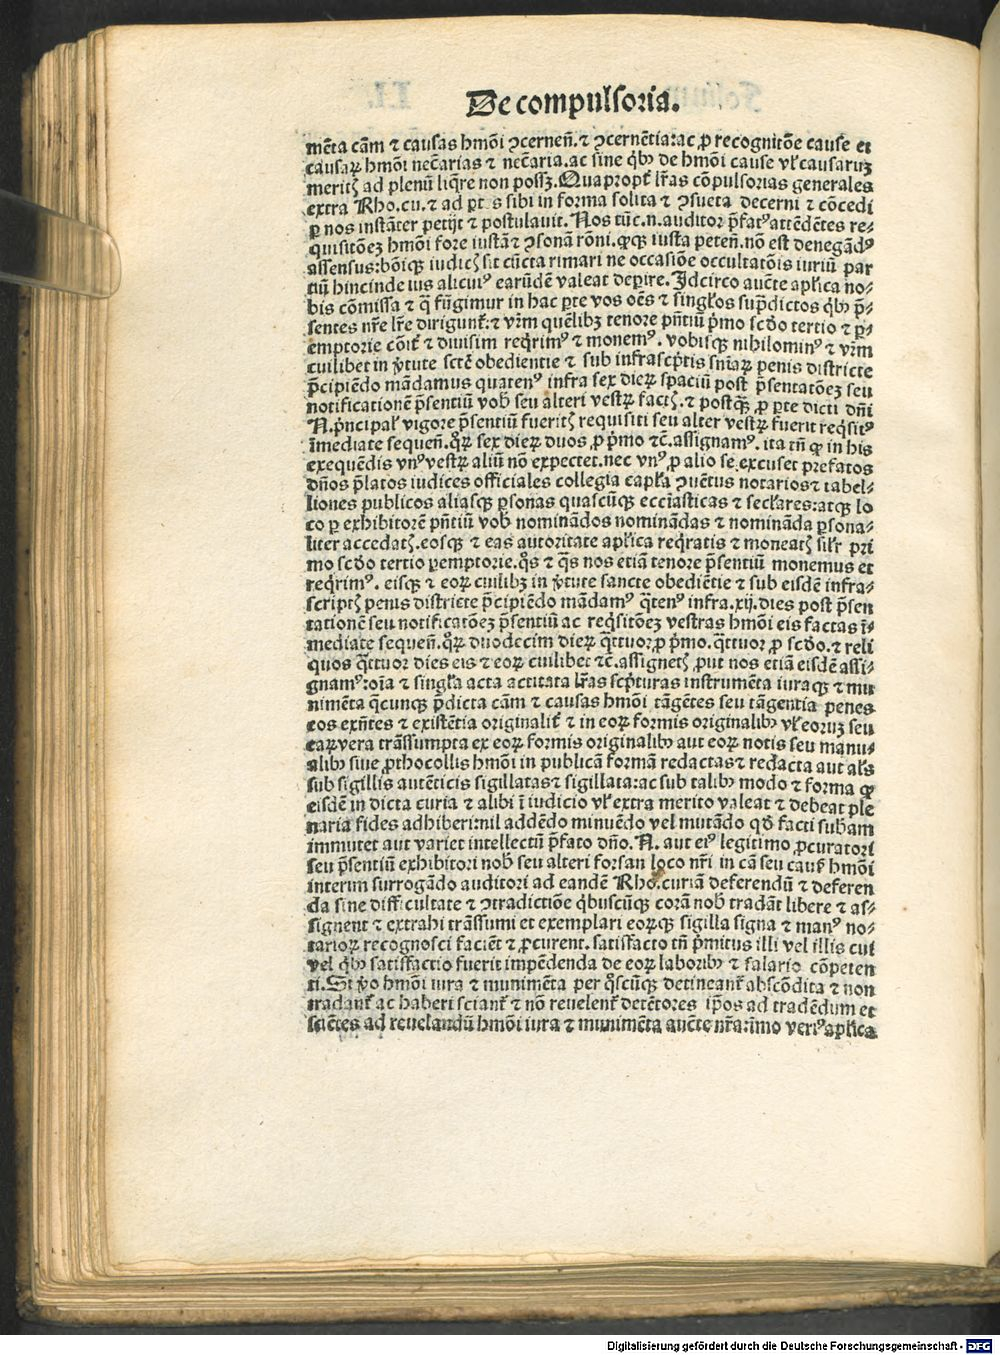 De compulsoria.
mēta cām ⁊ causas hmōi ꝯcerneñ. ⁊ ꝯcernētia: ac ꝓ recognitōe cause et
causaꝝ hmōi necārias ⁊ necāria. ac sine qͥbꝰ de hmōi cause vl̕ causaruꝫ
meritꝭ ad plenū liqͥre non possꝫ. Quapropt̕ lr̄as cōpulsorias generales
extra Rho. cu. ⁊ ad ꝑtes sibi in forma solita ⁊ ꝯsueta decerni ⁊ cōcedi
ꝑ nos instāter petijt ⁊ postulauit. Nos tūc. n. auditor p̄fatꝰ attēdētes re⸗
quisitōeꝫ hmōi fore iustā ⁊ ꝯsonā rōni. ꝙqꝫ iusta peteñ. nō est denegādꝰ
assensus: bōiqꝫ iudicꝭ sit cūcta rimari ne occasiōe occultatōis iuriū par
tiū hincinde ius alicuiꝰ earūdē valeat deꝑire. Idcirco aucte apl̕ica no⸗
bis cōmissa ⁊ q̄ fūgimur in hac ꝑte vos oēs ⁊ singl̕os supͣdictos qͥbꝰ p̄⸗
sentes nr̄e lr̄e dirigunt̕: ⁊ vr̄m quēlibꝫ tenore pn̄tiū pͥmo scd̕o tertio ⁊ ꝑ⸗
emptorie cōit̕ ⁊ diuisim reqͥrimꝰ ⁊ monemꝰ. vobisqꝫ nihilominꝰ ⁊ vr̄m
cuilibet in v̕tute scтē obedientie ⁊ sub infrascͥptis sn̄iaꝝ penis districte
p̄cipiēdo mādamus quatenꝰ infra sex dieꝝ spaciū post p̄sentatōeꝫ seu
notificationē p̄sentiū vob̕ seu alteri vestꝝ factꝭ. ⁊ postqͣꝫ ꝓ ꝑte dicti dn̄i
N. pͥncipal̕ vigore p̄sentiū fueritꝭ requisiti seu alter vestꝝ fuerit reqͥsitꝰ
īmediate sequeñ. qͦꝝ sex dieꝝ duos ꝓ pͥmo ⁊c̄. assignamꝰ. ita tn̄ ꝙ in his
exequēdis vnꝰ vestꝝ aliū nō expectet. nec vnꝰ ꝓ alio se excuset prefatos
dn̄os p̄latos iudices officiales collegia capl̕a ꝯuētus notarios ⁊ tabel⸗
liones publicos aliasqꝫ ꝑsonas quascūqꝫ eccl̕iasticas ⁊ secl̕ares: atqꝫ lo
co ꝑ exhibitorē pn̄tiū vob̕ nominādos nominādas ⁊ nomināda ꝑsona⸗
liter accedatꝭ. eosqꝫ ⁊ eas autoritate apl̕ica reqͥratis ⁊ moneatꝭ sil̕r pri
mo scd̕o tertio ꝑemptorie. qͦs ⁊ qͣs nos etiā tenore p̄sentiū monemus et
reqͥrimꝰ. eisqꝫ ⁊ eoꝝ cuilibꝫ in v̕tute sancte obediētie ⁊ sub eisdē infra⸗
scriptꝭ penis districte p̄cipiēdo mādamꝰ qͣtenꝰ infra. xij. dies post p̄sen
tationē seu notificatōeꝫ p̄sentiū ac reqͥsitōeꝫ vestras hmōi eis factas ī⸗
mediate sequeñ. qͦꝝ duodecim dieꝝ qͣttuor ꝓ pͥmo. qͣttuor ꝓ scd̕o. ⁊ reli
quos qͣttuor dies eis ⁊ eoꝝ cuilibet ⁊c̄. assignetꝭ ꝓut nos etiā eisdē assi⸗
gnamꝰ: oīa ⁊ singl̕a acta actitata lr̄as scͥpturas instrumēta iuraqꝫ ⁊ mu
nimēta qͣcunqꝫ p̄dicta cām ⁊ causas hmōi tāgētes seu tāgentia penes
eos exn̄tes ⁊ existētia originalit̕ ⁊ in eoꝝ formis originalibꝰ vl̕ eoruꝫ seu
eaꝝ vera trāssumpta ex eoꝝ formis originalibꝰ aut eoꝝ notis seu manu⸗
alibꝰ siue ꝓthocollis hmōi in publicā formā redactas ⁊ redacta aut al̕s
sub sigillis autēticis sigillatas ⁊ sigillata: ac sub talibꝰ modo ⁊ forma ꝙ
eisdē in dicta curia ⁊ alibi ī iudicio vl̕ extra merito valeat ⁊ debeat ple
naria fides adhiberi: nil addēdo minuēdo vel mutādo qd̕ facti subāam
immutet aut variet intellectū p̄fato dn̄o. N. aut eiꝰ legitimo ꝓcuratori
seu p̄sentiū exhibitori nob̕ seu alteri forsan loco nr̄i in cā seu caus̕ hmōi
interim surrogādo auditori ad eandē Rho. curiā deferendū ⁊ deferen
da sine difficultate ⁊ ꝯtradictiōe qͥbuscūqꝫ corā nob̕ tradāt libere ⁊ as⸗
signent ⁊ extrahi trāssumi et exemplari eoꝝqꝫ sigilla signa ⁊ manꝰ no⸗
tarioꝝ recognosci faciēt ⁊ ꝓcurent. satisfacto tn̄ pͥmitus illi vel illis cui
vel qͥbꝰ satisfactio fuerit impēdenda de eoꝝ laboribꝰ ⁊ salario cōpeten
ti. Si v̕o hmōi iura ⁊ munimēta per qͦscūqꝫ detineant̕ abscōdita ⁊ non
tradant̕ ac haberi sciant̕ ⁊ nō reuelent̕ detētores ip̄os ad tradēdum et
sciētes ad reuelandū hmōi iura ⁊ munimēta aucte nr̄a: imo veriꝰ apl̕ica
Digitalisierung gefördert durch die Deutsche Forschungsgemeinschaft - DFG